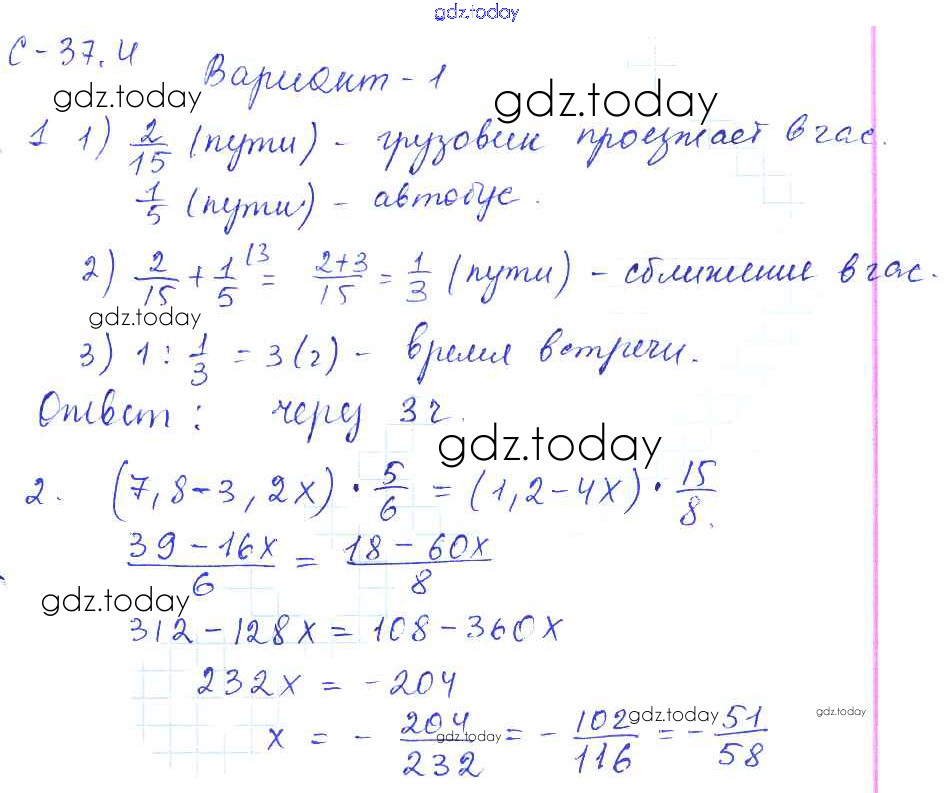 gdz.today
С-37.4
Вариант-1
gdz.today gdz.today
1 1) 2/15 (пути) - грузовик проезжает в час.
1/5 (пути) - автобус.
2) 2/15 + 1/5 (3 = 2+3/15 = 1/3 (пути) - сближение в час.
gdz.today
3) 1 : 1/3 = 3 (ч) - время встречи.
Ответ: через 3 ч.
gdz.today
2. (7,8-3,2x) · 5/6 = (1,2-4x) · 15/8.
39-16x/6 = 18-60x/8
gdz.today
312-128x = 108-360x
232x = -204
gdz.today gdz.today
x = - 204/232 = - 102/116 = - 51/58
gdz.today